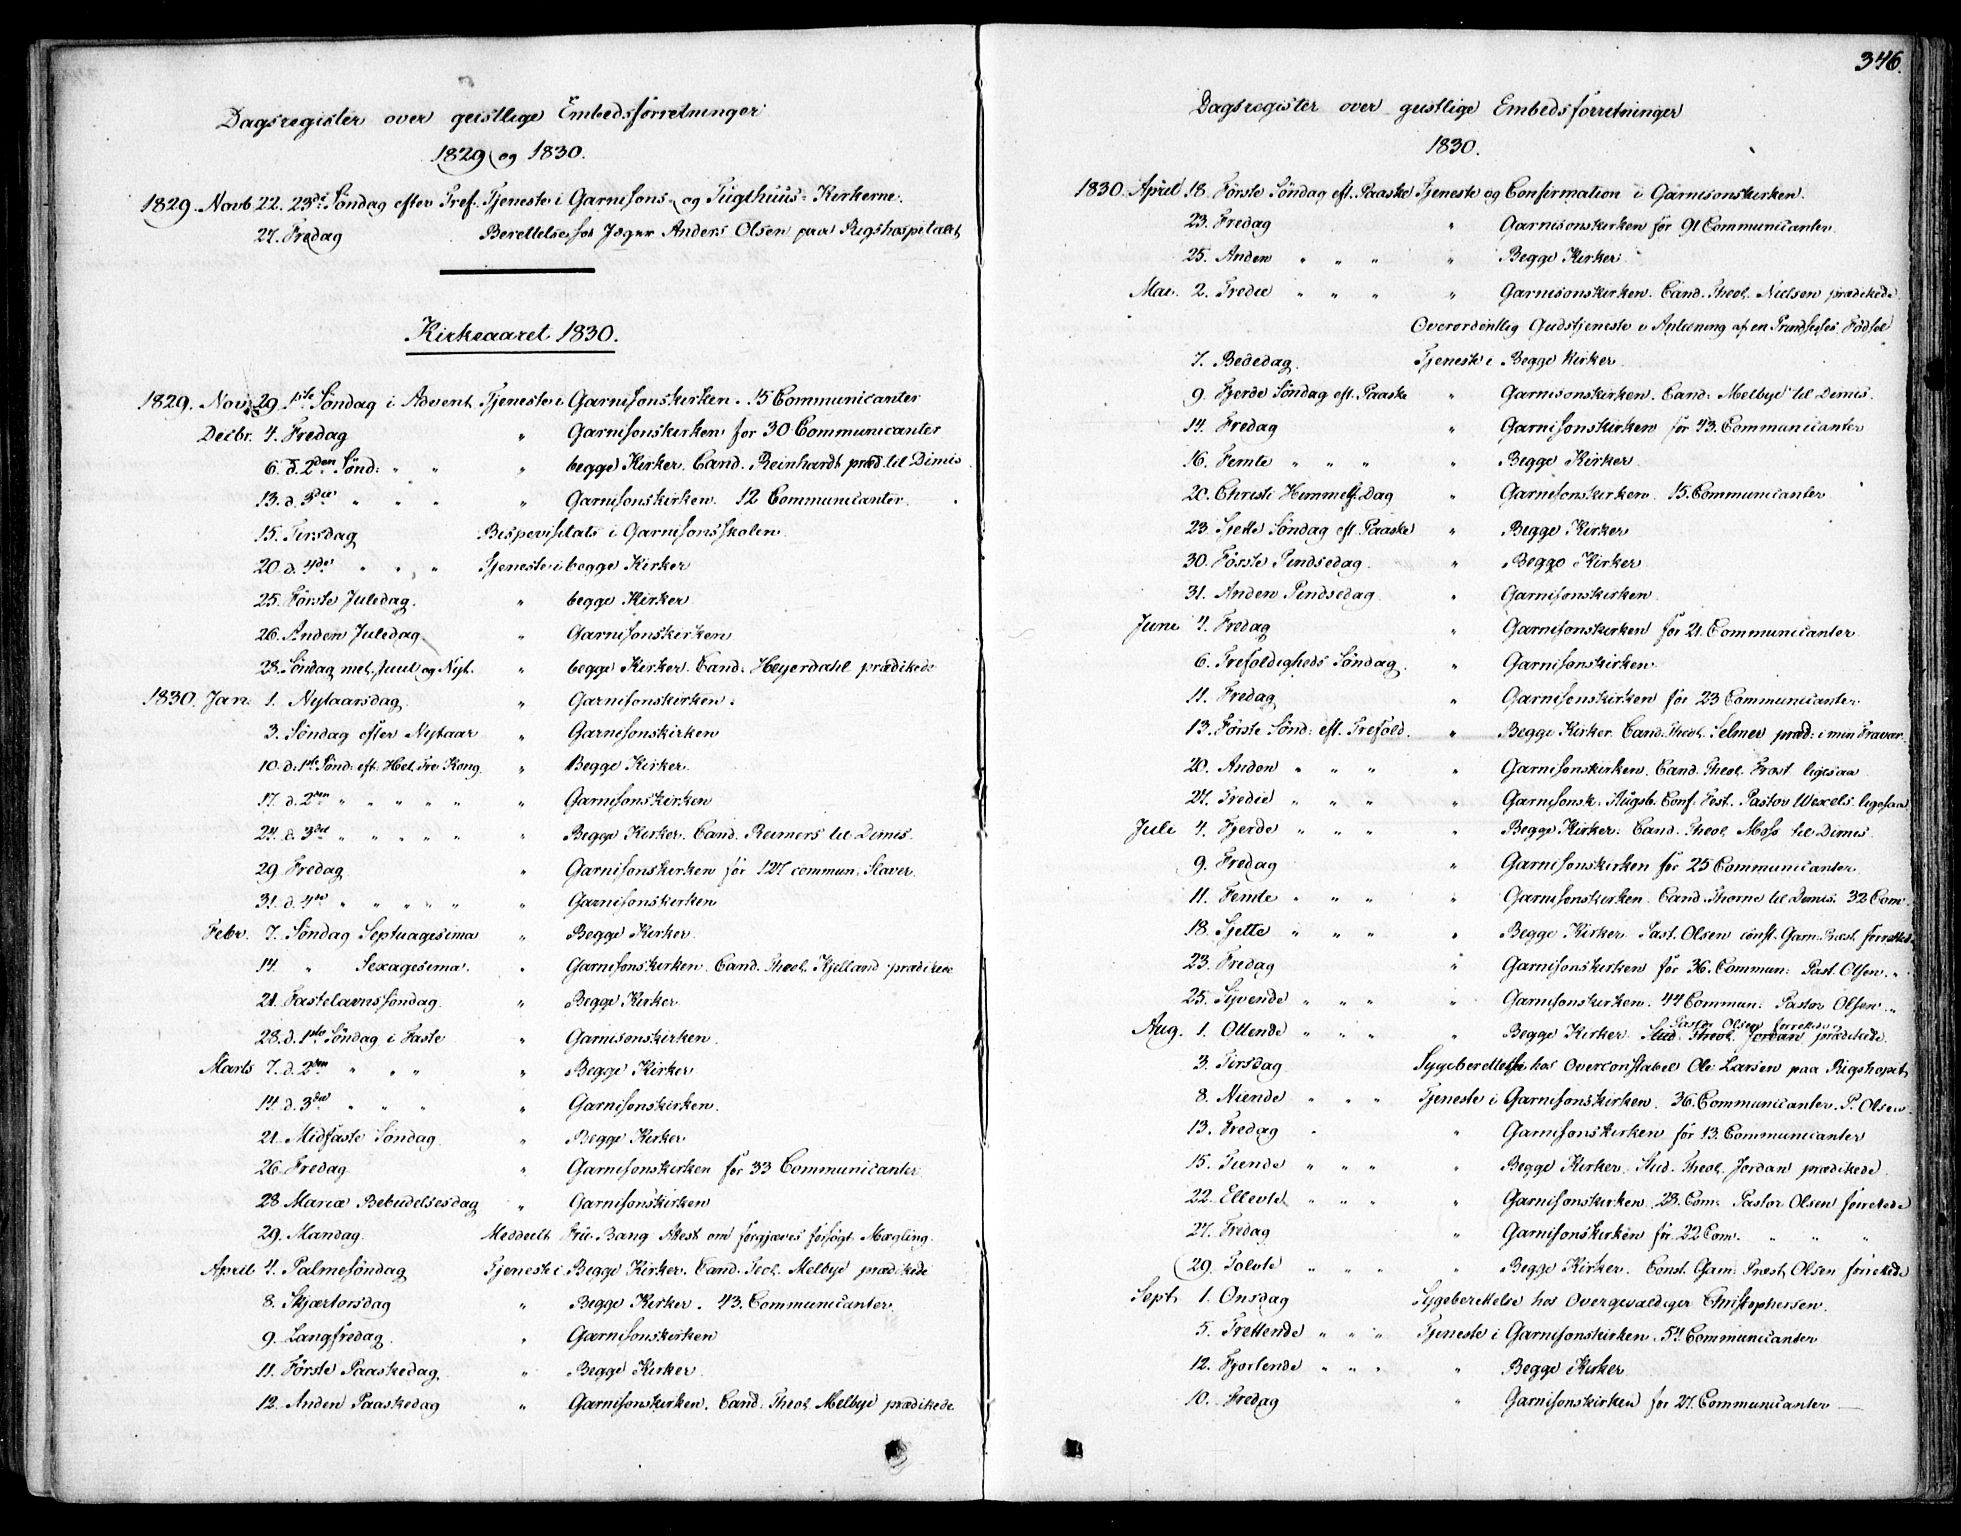 Dagsregister over geistlige Embedsforretninger
1829 og 1830.
1829. Novb 22. 23de Söndag efter Tref. Tjeneste i Garnisons- og Tugthuus-Kirkerne.
27. Fredag Berettelse hos Jæger Anders Olsen paa Rigshospitalet
Kirkeaaret 1830.
1829. Nov. 29. 1ste Söndag i Advent Tjeneste i Garnisonskirken. 15 Communicanter
Decbr. 4. Fredag " Garnisonskirken for 30 Communicanter
6. d. 2den Sönd: " " " begge Kirker. Cand. Reinhardt præd. til Dimis
13. d. 3die " " " " Garnisonskirken. 12 Communicanter.
15. Tirsdag Bispevisitats i Garnisonsskolen.
20. d. 4de " " " Tjeneste i begge Kirker
25. Förste Juledag. " begge Kirker
26. Anden Juledag " Garnisonskirken
28. Söndag mel. Juul og Nyt. " begge Kirker. Cand. Heyerdahl prædikede
1830. Jan: 1. Nytaarsdag. " Garnisonskirken.
3. Söndag efter Nytaar " Garnisonskirken
10. d: 1ste Sönd: eft. Hel. Tre Kong. " Begge Kirker.
17. d. 2den " " " " " " Garnisonskirken
24. d. 3die " " " " " " Begge Kirker. Cand. Reimers til Dimis.
29. Fredag " Garnisonskirken för 127 commun: Slaver.
31. d. 4de " " " " " " Garnisonskirken
Febr. 7. Söndag Septuagesima " Begge Kirker.
14. " Sexagesima. " Garnisonskirken. Cand. Theol. Kjelland prædikede
21. Fastelavnssöndag. " Begge Kirker
28. d. 1ste Söndag i Faste " Garnisonskirken.
Marts 7. d. 2den " " " " Begge Kirker
14. d. 3die " " " " Garnisonskirken.
21. Midfaste Söndag " Begge Kirker
26. Fredag " Garnisonskirken för 33 Communicanter
28. Mariæ Bebudelsesdag " Garnisonskirken
29. Mandag. Meddeelt Fru Bang Attest om forgjæves forsögt Mægling.
April 4. Palmesöndag Tjeneste i Begge Kirker. Cand. Teol. Melbye prædikede
8. Skjærtorsdag " Begge Kirker. 43. Communicanter.
9. Langfredag. " Garnisonskirken
11. Förste Paaskedag " Begge Kirker.
12. Anden Paaskedag " Garnisonskirken. Cand. Theol. Melbye prædikede
346.
Dagsregister over geistlige Embedsforretninger
1830.
1830. April 18. Förste Söndag eft. Paaske Tjeneste og Confirmation i Garnisonskirken.
23. Fredag " Garnisonskirken för 91 Communicanter.
25. Anden " " " " Begge Kirker
Mai. 2. Tredie " " " " Garnisonskirken. Cand. Theol. Nielsen prædikede.
Overordentlig Gudstjeneste i Anledning af en Prindsesses Födsel
7. Bededag. Tjeneste i Begge Kirker.
9. Fjerde Söndag eft. Paaske " Garnisonskirken. Cand. Melbye til Dimis.
14. Fredag " Garnisonskirken för 43. Communicanter
16. Femte " " " " Begge Kirker.
20. Christi Himmelf. Dag " Garnisonskirken. 15. Communicanter
23. Sjette Söndag eft. Paaske " Begge Kirker
30. Förste Pindsedag. " Begge Kirker
31. Anden Pindsedag. " Garnisonskirken.
Juni 4. Fredag " Garnisonskirken för 21. Communicanter
6. Trefoldigheds Söndag. " Garnisonskirken
11. Fredag " Garnisonskirken för 23 Communicanter
13. Förste Sönd: eft. Trefold. " Begge Kirker. Cand. Theol. Selmer præd: i min Fravær.
20. Anden " " " " Garnisonskirken. Cand. Theol. Frost ligesaa
27. Tredie " " " " Garnisonsk: Augsb. Conf: Fest. Pastor Wexels ligesaa
Juli 4. Fjerde " " " " Begge Kirker: Cand. Theol. Moss til Dimis.
9. Fredag " Garnisonskirken för 25 Communicanter.
11. Femte " " " " Garnisonskirken. Cand. Thorne til Dimis: 32 Com.
18. Sjette " " " " Begge Kirker. Past. Olsen const. Garn. Præst forrettede
23. Fredag " Garnisonskirken för 36. Commun: Past. Olsen. "
25. Syvende " " " " Garnisonskirken. 44 Commun: Pastor Olsen. "
Aug. 1. Ottende " " " " Begge Kirker. Stud. Theol. Jordan prædikede.
Pastor Olsen forrettede
3. Tirsdag Sygeberettelse hos Overconstabel Ole Larsen paa Rigshospit.
8. Niende " " " Tjeneste i Garnisonskirken. 36. Communicanter. P. Olsen
13. Fredag " " Garnisonskirken för 13. Communicanter
15. Tiende " " " " Begge Kirker. Stud. Theol. Jordan prædikede.
22. Ellevte " " " " Garnisonskirken. 23. Com. Pastor Olsen forrettede
27. Fredag " Garnisonskirken för 22 Com. " " "
29. Tolvte " " " " Begge Kirker. Const. Garn: Præst Olsen forrettede
Sept. 1. Onsdag Sygeberettelse hos Overgevaldiger Christophersen.
5. Trettende " " " Tjeneste i Garnisonskirken. 54 Communicanter
12. Fjortende " " " " Begge Kirker
10. Fredag " Garnisonskirken för 27. Communicanter